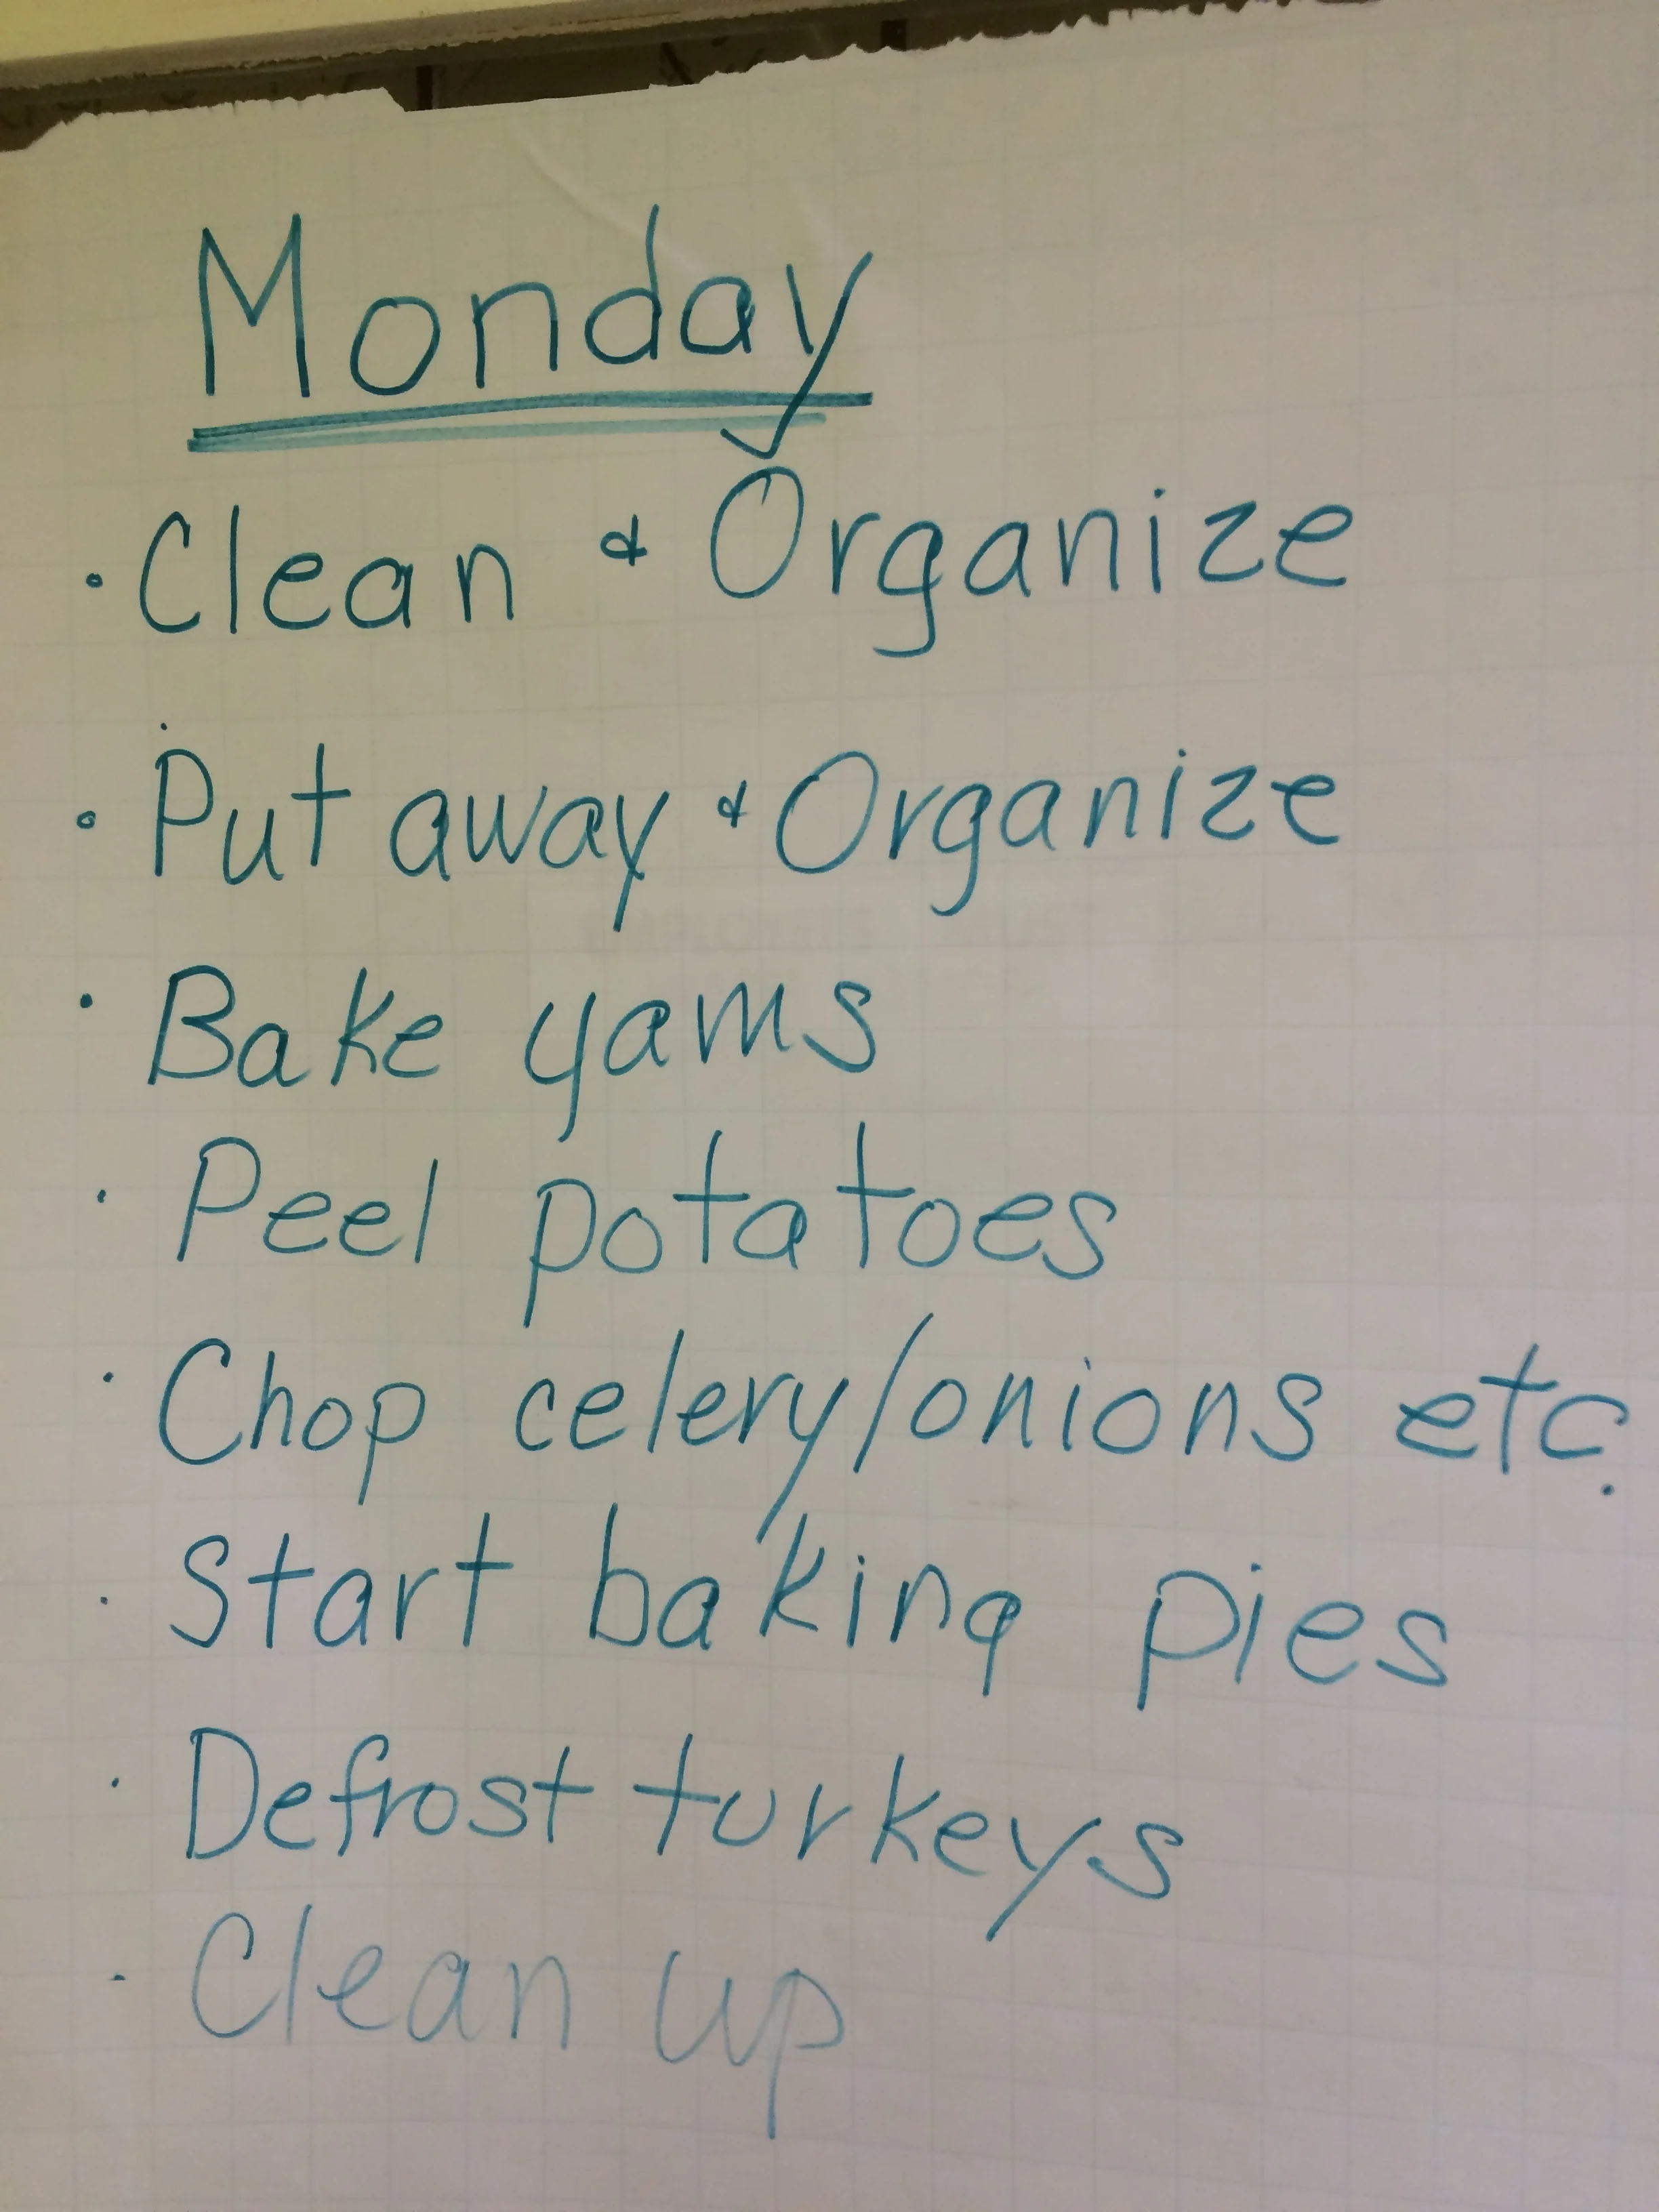 Monday
· Clean & Organize
· Put away & Organize
· Bake yams
· Peel potatoes
· Chop celery/onions etc.
· Start baking pies
· Defrost turkeys
· Clean up